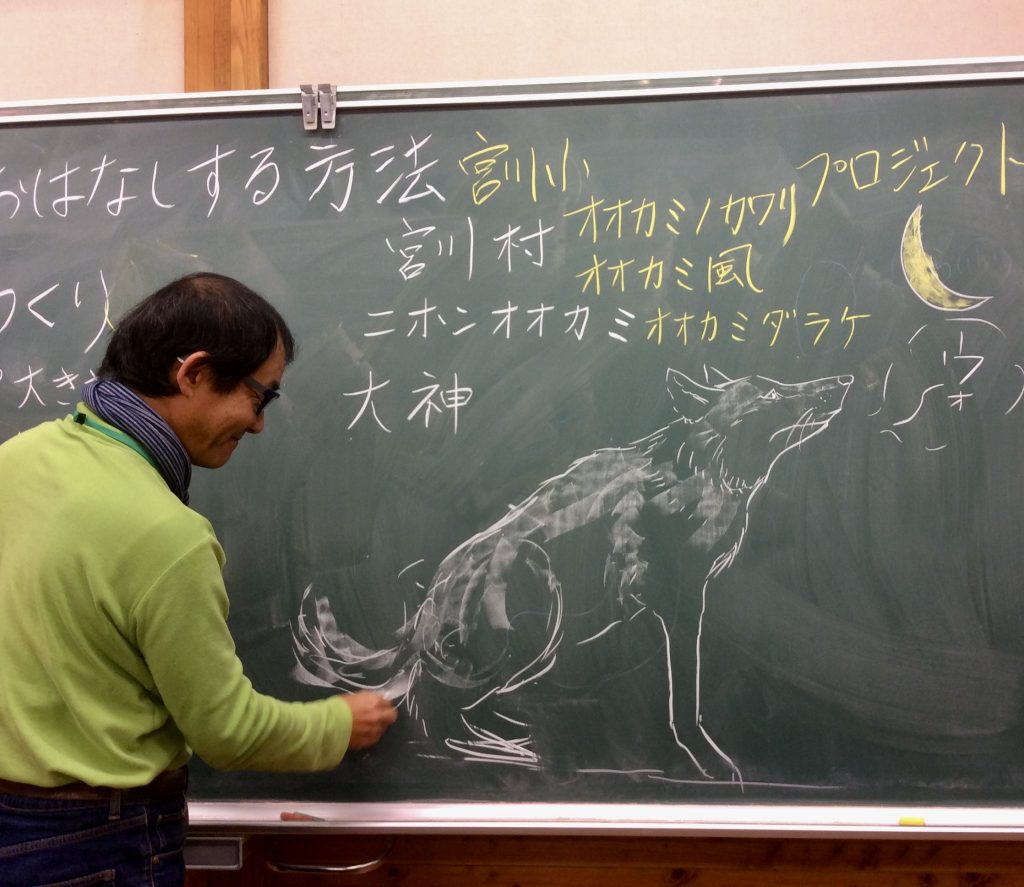 おはなしする方法 宮川小
プロジェクト
宮川村 オオカミノカワリ
オオカミ風
つくり
ニホンオオカミ オオカミダラケ
大き
大神